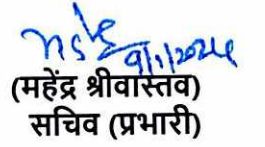 9/1/2024
(महेंद्र श्रीवास्तव)
सचिव (प्रभारी)